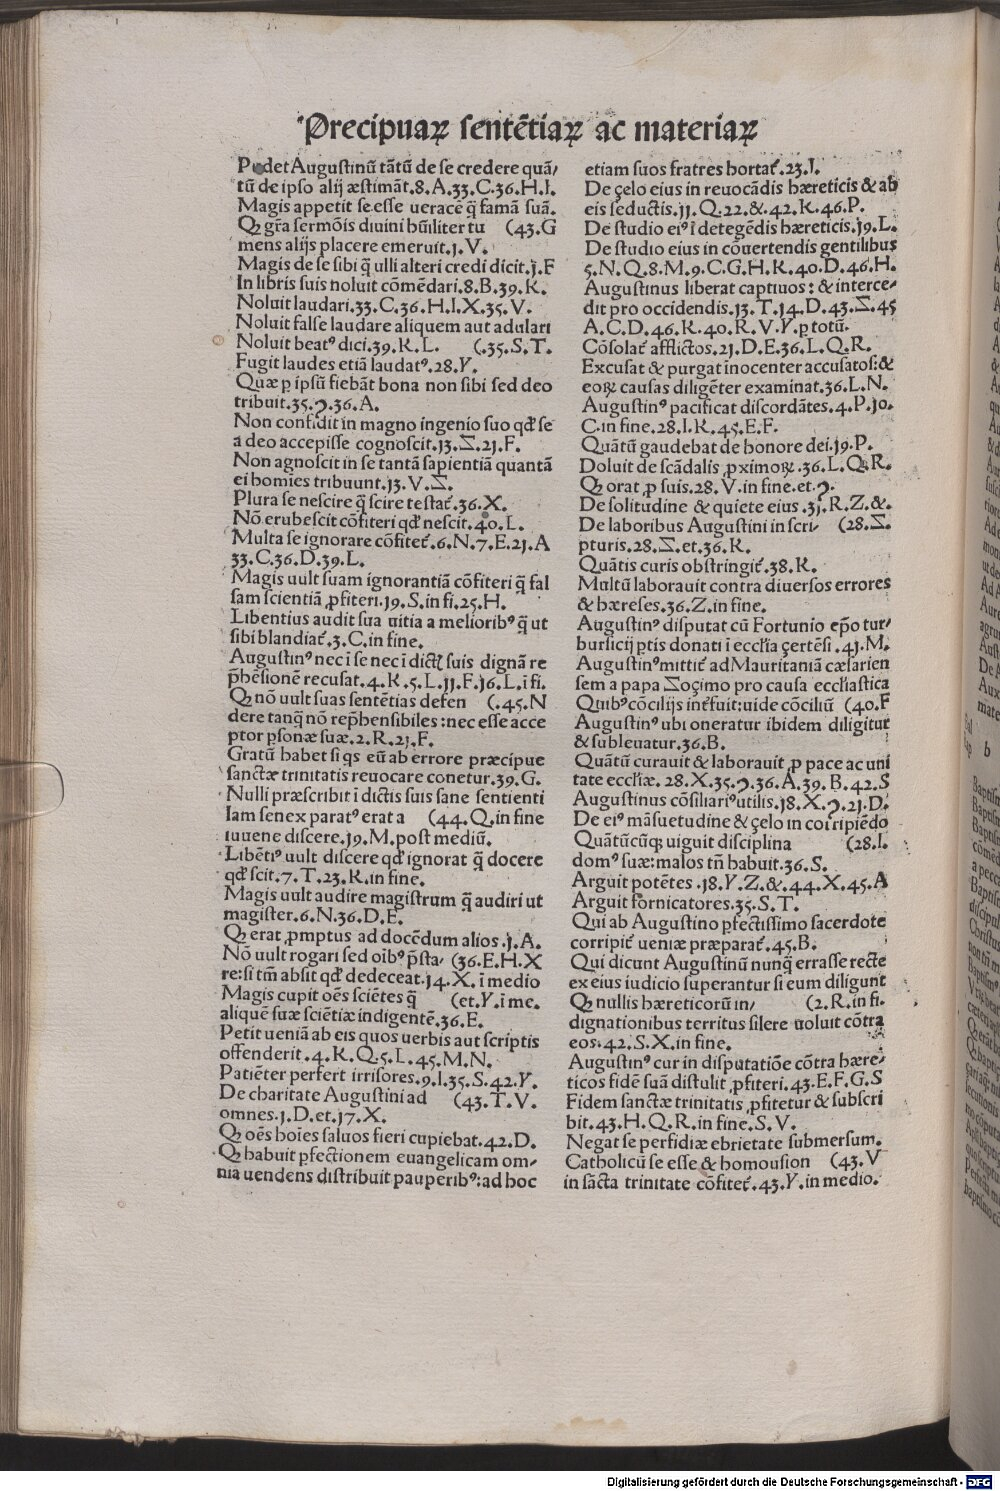 Precipuaꝝ sentẽtiaꝝ ac materiaꝝ
Pudet Augustinũ tãtũ de se credere quã/
tũ de ipso alij æstimãt.8.A.33.C.36.H.I.
Magis appetit se esse uerace q̃ famã suã.
Qꝫ gr̃a sermõis diuini hũiliter tu (43.G
mens alijs placere emeruit.1.V.
Magis de se sibi q̃ ulli alteri credi dicit.1.F
In libris suis noluit cõmẽdari.8.B.39.K.
Noluit laudari.33.C.36.H.I.X.35.V.
Noluit false laudare aliquem aut adulari
Noluit beatꝰ dici.39.K.L. (.35.S.T.
Fugit laudes etiã laudatꝰ.28.Y.
Quæ ꝑ ipsũ fiebãt bona non sibi sed deo
tribuit.35.ꝯ.36.A.
Non confidit in magno ingenio suo qđ se
a deo accepisse cognoscit.13.Z.21.F.
Non agnoscit in se tantã sapientiã quantã
ei homies tribuunt.13.V.Z.
Plura se nescire q̃ scire testat᷑.36.X.
Nõ erubescit cõfiteri qđ nescit.40.L.
Multa se ignorare cõfitet᷑.6.N.7.E.21.A
33.C.36.D.39.L.
Magis uult suam ignorantiã cõfiteri q̃ fal
sam scientiã ꝓfiteri.19.S.in fi.25.H.
Libentius audit sua uitia a melioribꝰ q̃ ut
sibi blandiat᷑.3.C.in fine.
Augustinꝰ nec ĩ se nec ĩ dictꝭ suis dignã re
p̃hẽsionẽ recusat.4.K.5.L.11.F.16.L.ĩ fi.
Qꝫ nõ uult suas sentẽtias defen (.45.N
dere tanq̃ nõ rep̃hensibiles:nec esse acce
ptor ꝑsonæ suæ.2.R.21.F.
Gratũ habet si q̃s eũ ab errore præcipue
sanctæ trinitatis reuocare conetur.39.G.
Nulli præscribit ĩ dictis suis sane sentienti
Iam senex paratꝰ erat a (44.Q.in fine
iuuene discere.19.M.post mediũ.
Libẽtiꝰ uult discere qđ ignorat q̃ docere
qđ scit.7.T.23.K.in fine.
Magis uult audire magistrum q̃ audiri ut
magister.6.N.36.D.E.
Qꝫ erat ꝓmptus ad docẽdum alios.1.A.
Nõ uult rogari sed oĩbꝰ p̃sta/ (36.E.H.X
re:si tm̃ absit qđ dedeceat.14.X.ĩ medio
Magis cupit oẽs sciẽtes q̃ (et.Y.ĩ me.
aliquẽ suæ sciẽtiæ indigentẽ.36.E.
Petit ueniã ab eis quos uerbis aut scriptis
offenderit.4.K.Q.5.L.45.M.N.
Patiẽter perfert irrisores.9.I.35.S.42.Y.
De charitate Augustini ad (43.T.V.
omnes.1.D.et.17.X.
Qꝫ oẽs hoĩes saluos fieri cupiebat.42.D.
Qꝫ habuit ꝑfectionem euangelicam om/
nia uendens distribuit pauperibꝰ:ad hoc
etiam suos fratres hortat᷑.23.I.
De çelo eius in reuocãdis hæreticis & ab
eis seductis.11.Q.22.&.42.K.46.P.
De studio eiꝰ ĩ detegẽdis hæreticis.19.L.
De studio eius in cõuertendis gentilibus
5.N.Q.8.M.9.C.G.H.K.40.D.46.H.
Augustinus liberat captiuos:& interce/
dit pro occidendis.13.T.14.D.43.Z.45
A.C.D.46.K.40.R.V.Y.ꝑ totũ.
Cõsolat᷑ afflictos.21.D.E.36.L.Q.R.
Excusat & purgat ĩnocenter accusatos:&
eoꝝ causas diligẽter examinat.36.L.N.
Augustinꝰ pacificat discordãtes.4.P.10.
C.in fine.28.I.K.45.E.F.
Quãtũ gaudebat de honore dei.19.P.
Doluit de scãdalis ꝓximoꝝ.36.L.Q.R.
Qꝫ orat ꝓ suis.28.V.in fine.et.ꝯ.
De solitudine & quiete eius.31.R.Z.&.
De laboribus Augustini in scri/ (28.Z.
pturis.28.Z.et.36.K.
Quãtis curis obstringit᷑.38.K.
Multũ laborauit contra diuersos errores
& hæreses.36.Z.in fine.
Augustinꝰ disputat cũ Fortunio ep̃o tur/
burlicij ꝑtis donati ĩ eccl̃ia çertẽsi.41.M.
Augustinꝰ mittit᷑ ad Mauritaniã cæsarien
sem a papa Zoçimo pro causa eccl̃iastica
Quibꝰ cõcilijs ĩnterfuit:uide cõciliũ (40.F
Augustinꝰ ubi oneratur ibidem diligitur
& subleuatur.36.B.
Quãtũ curauit & laborauit ꝓ pace ac uni
tate eccl̃iæ.28.X.35.ꝯ.36.A.39.B.42.S
Augustinus cõsiliariꝰ utilis.18.X.ꝯ.21.D.
De eiꝰ mãsuetudine & çelo in corripiẽdo
Quãtũcũqꝫ uiguit disciplina (28.I.
domꝰ suæ:malos tñ habuit.36.S.
Arguit potẽtes.18.Y.Z.&.44.X.45.A
Arguit fornicatores.35.S.T.
Qui ab Augustino ꝑfectissimo sacerdote
corripit᷑ ueniæ præparat᷑.45.B.
Qui dicunt Augustinũ nunq̃ errasse recte
ex eius iudicio superantur si eum diligunt
Qꝫ nullis hæreticorũ in/ (2.R.in fi.
dignationibus territus silere uoluit cõtra
eos.42.S.X.in fine.
Augustinꝰ cur in disputatiõe cõtra hære/
ticos fidẽ suã distulit ꝓfiteri.43.E.F.G.S
Fidem sanctæ trinitatis ꝓfitetur & subscri
bit.43.H.Q.R.in fine.S.V.
Negat se perfidiæ ebrietate submersum.
Catholicũ se esse & homousion (43.V
in sãcta trinitate cõfitet᷑.43.Y.in medio.
Digitalisierung gefördert durch die Deutsche Forschungsgemeinschaft - DFG